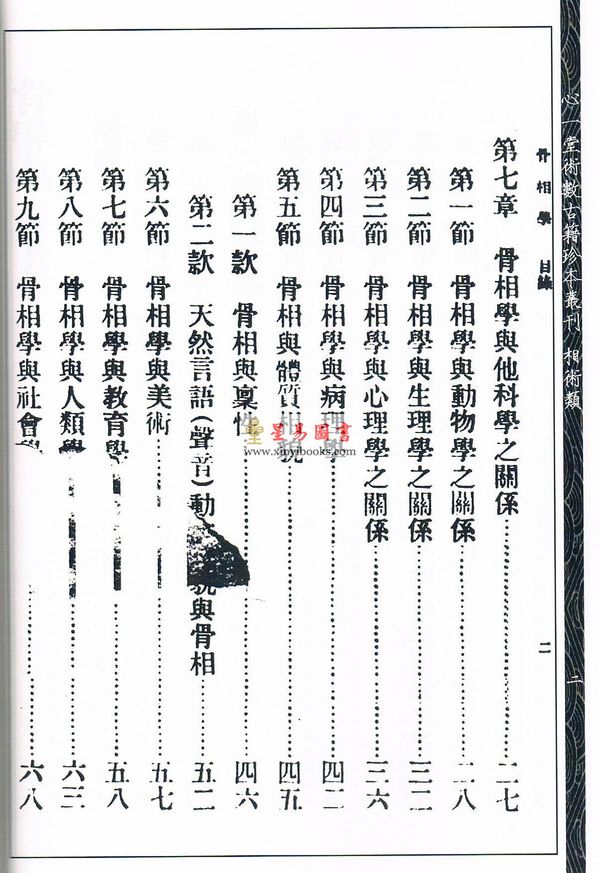 心一堂術數古籍珍本叢刊 相術類 二
骨相學 目錄 二
第七章 骨相學與他科學之關係 二七
第一節 骨相學與動物學之關係 二八
第二節 骨相學與生理學之關係 三二
第三節 骨相學與心理學之關係 三六
第四節 骨相學與病理學 四二
第五節 骨相與體質相貌 四五
第一款 骨相與稟性 四六
第二款 天然言語(聲音)動 貌與骨相 五二
第六節 骨相學與美術 五七
第七節 骨相學與教育學 五八
第八節 骨相學與人類學 六三
第九節 骨相學與社會學 六八
星易圖書
www.xinyibooks.com